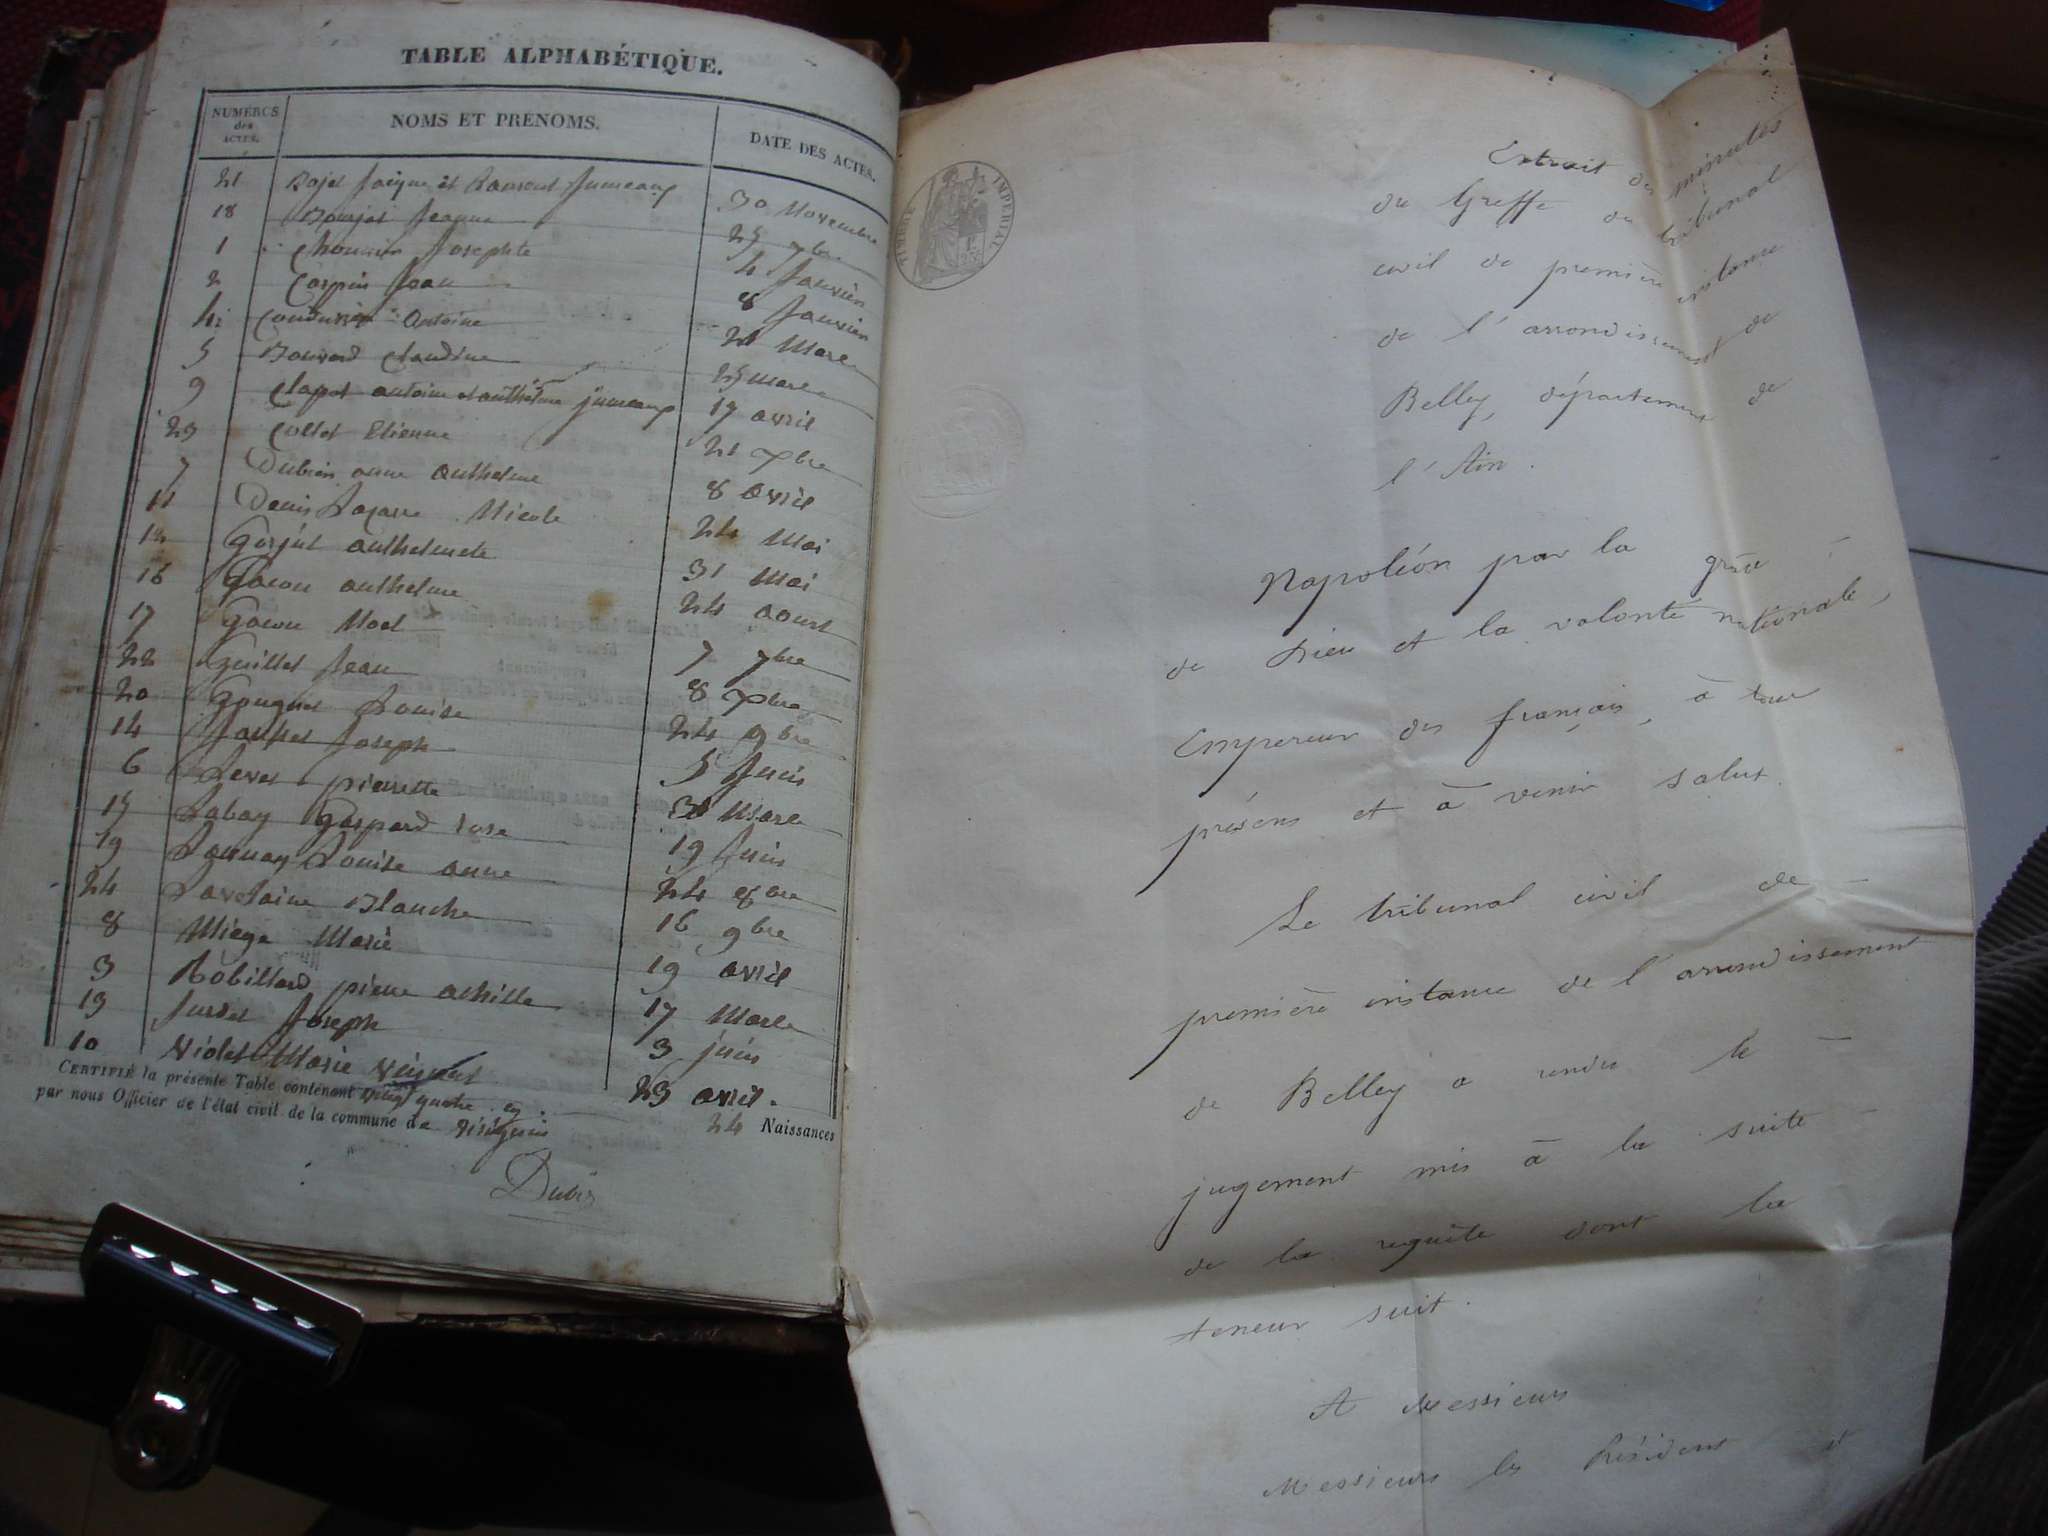 TABLE ALPHABÉTIQUE.
NUMÉROS des ACTES. NOMS ET PRÉNOMS. DATE DES ACTES.
21 Jumeaux 30 Novembre
18 Jeanne 25 7bre
1 Josephte 4 Janvier
2 Carpin Jean 8 Janvier
4 Antoine Mars
5 Claudine 25 Mars
9 Clapet antoine et anthelme jumeaux 17 avril
23 Collet Etienne 21 Xbre
7 anne anthelme 8 avril
11 Denis Nicole 24 Mai
12 Gorjut 31 Mai
16 Gacon anthelme 24 aout
17 Gacon Noel 7 7bre
22 Guillet Jean 8 Xbre
20 Louise 24 9bre
14 Joseph 5 Juin
6 pierrette Mars
15 Labay Gaspard 19 Juin
19 Louise anne 24 8bre
24 Blanche 16 9bre
8 Miege Marie 19 avril
3 Robillard pierre achille 17 Mars
13 Joseph 3 juin
10 Violet Marie 23 avril.
CERTIFIÉ la présente Table contenant vingt quatre 24 Naissances
par nous Officier de l'état civil de la commune de
TIMBRE IMPÉRIAL
Extrait des minutes
du Greffe du tribunal
civil de première instance
de l'arrondissement de
Belley, département de
l'Ain.
Napoléon par la grâce
de Dieu et la volonté nationale,
Empereur des français, à tous
présens et à venir salut.
Le tribunal civil de
première instance de l'arrondissement
de Belley a rendu le
jugement mis à la suite
de la requête dont la
teneur suit.
A Messieurs
Messieurs les Président et